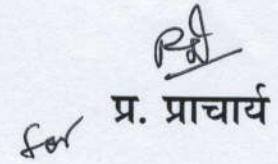 for प्र. प्राचार्य